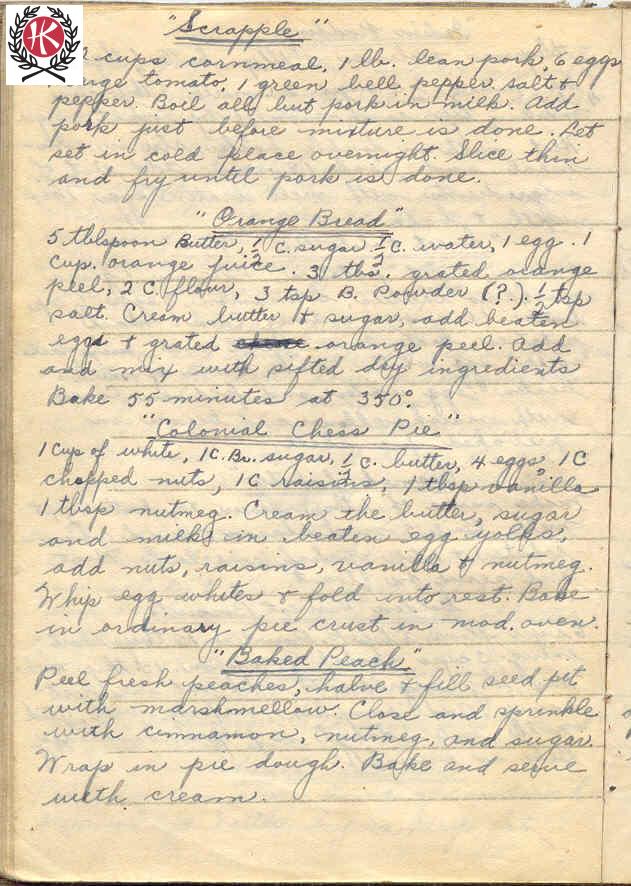 HK
"Scrapple"
2 cups cornmeal, 1 lb. lean pork, 6 eggs
tomato, 1 green bell pepper, salt &
pepper. Boil all but pork in milk. Add
pork just before mixture is done. Let
set in cold place overnight. Slice thin
and fry until pork is done.
"Orange Bread"
5 tblspoon Butter, 1/2 c. sugar 1/2 c. water, 1 egg. 1
cup. orange juice. 3 tbs. grated orange
peel, 2 C flour, 3 tsp B. Powder (?.) 1/2 tsp
salt. Cream butter & sugar, add beaten
eggs & grated orange peel. Add
and mix with sifted dry ingredients
Bake 55 minutes at 350°.
"Colonial Chess Pie"
1 Cup of white, 1 C. Br. sugar, 1/2 C. butter, 4 eggs, 1C
chopped nuts, 1C raisins, 1 tbsp vanilla
1 tbsp nutmeg. Cream the butter, sugar
and milk, in beaten egg yolks,
add nuts, raisins, vanilla & nutmeg.
Whip egg whites & fold into rest. Bake
in ordinary pie crust in mod. oven.
"Baked Peach"
Peel fresh peaches, halve & fill seed pit
with marshmellow. Close and sprinkle
with cinnamon, nutmeg, and sugar.
Wrap in pie dough. Bake and serve
with cream.